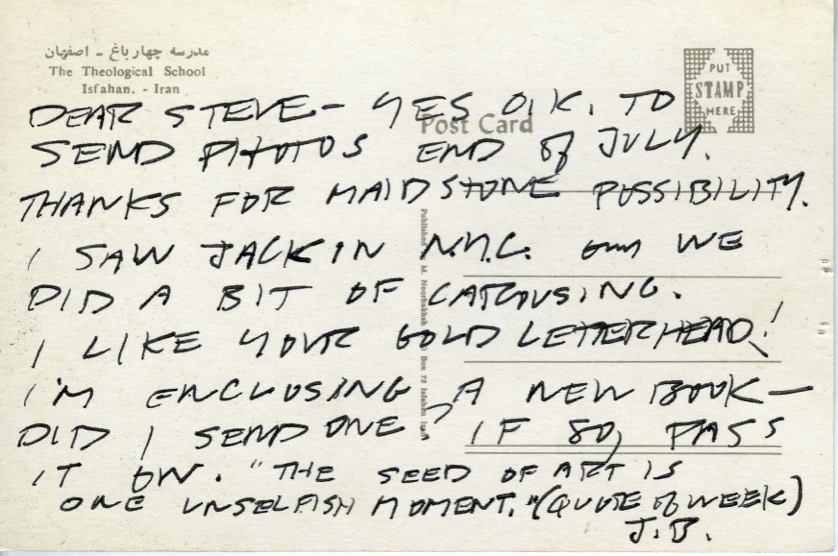 مدرسه چهارباغ - اصفهان
The Theological School
Isfahan. - Iran
PUT
STAMP
HERE
Post Card
DEAR STEVE - YES O.K. TO
SEND PHOTOS END of JULY.
THANKS FOR MAIDSTONE POSSIBILITY.
I SAW JACK IN N.Y.C. WE
DID A BIT OF CAROUSING.
I LIKE YOUR GOLD LETTERHEAD!
I'M ENCLOSING A NEW BOOK —
DID I SEND ONE? IF SO, PASS
IT ON. "THE SEED OF ART IS
ONE UNSELFISH MOMENT." (QUOTE of WEEK)
J.B.
Published M. Noorbakhsh Box 72 Isfahan Iran